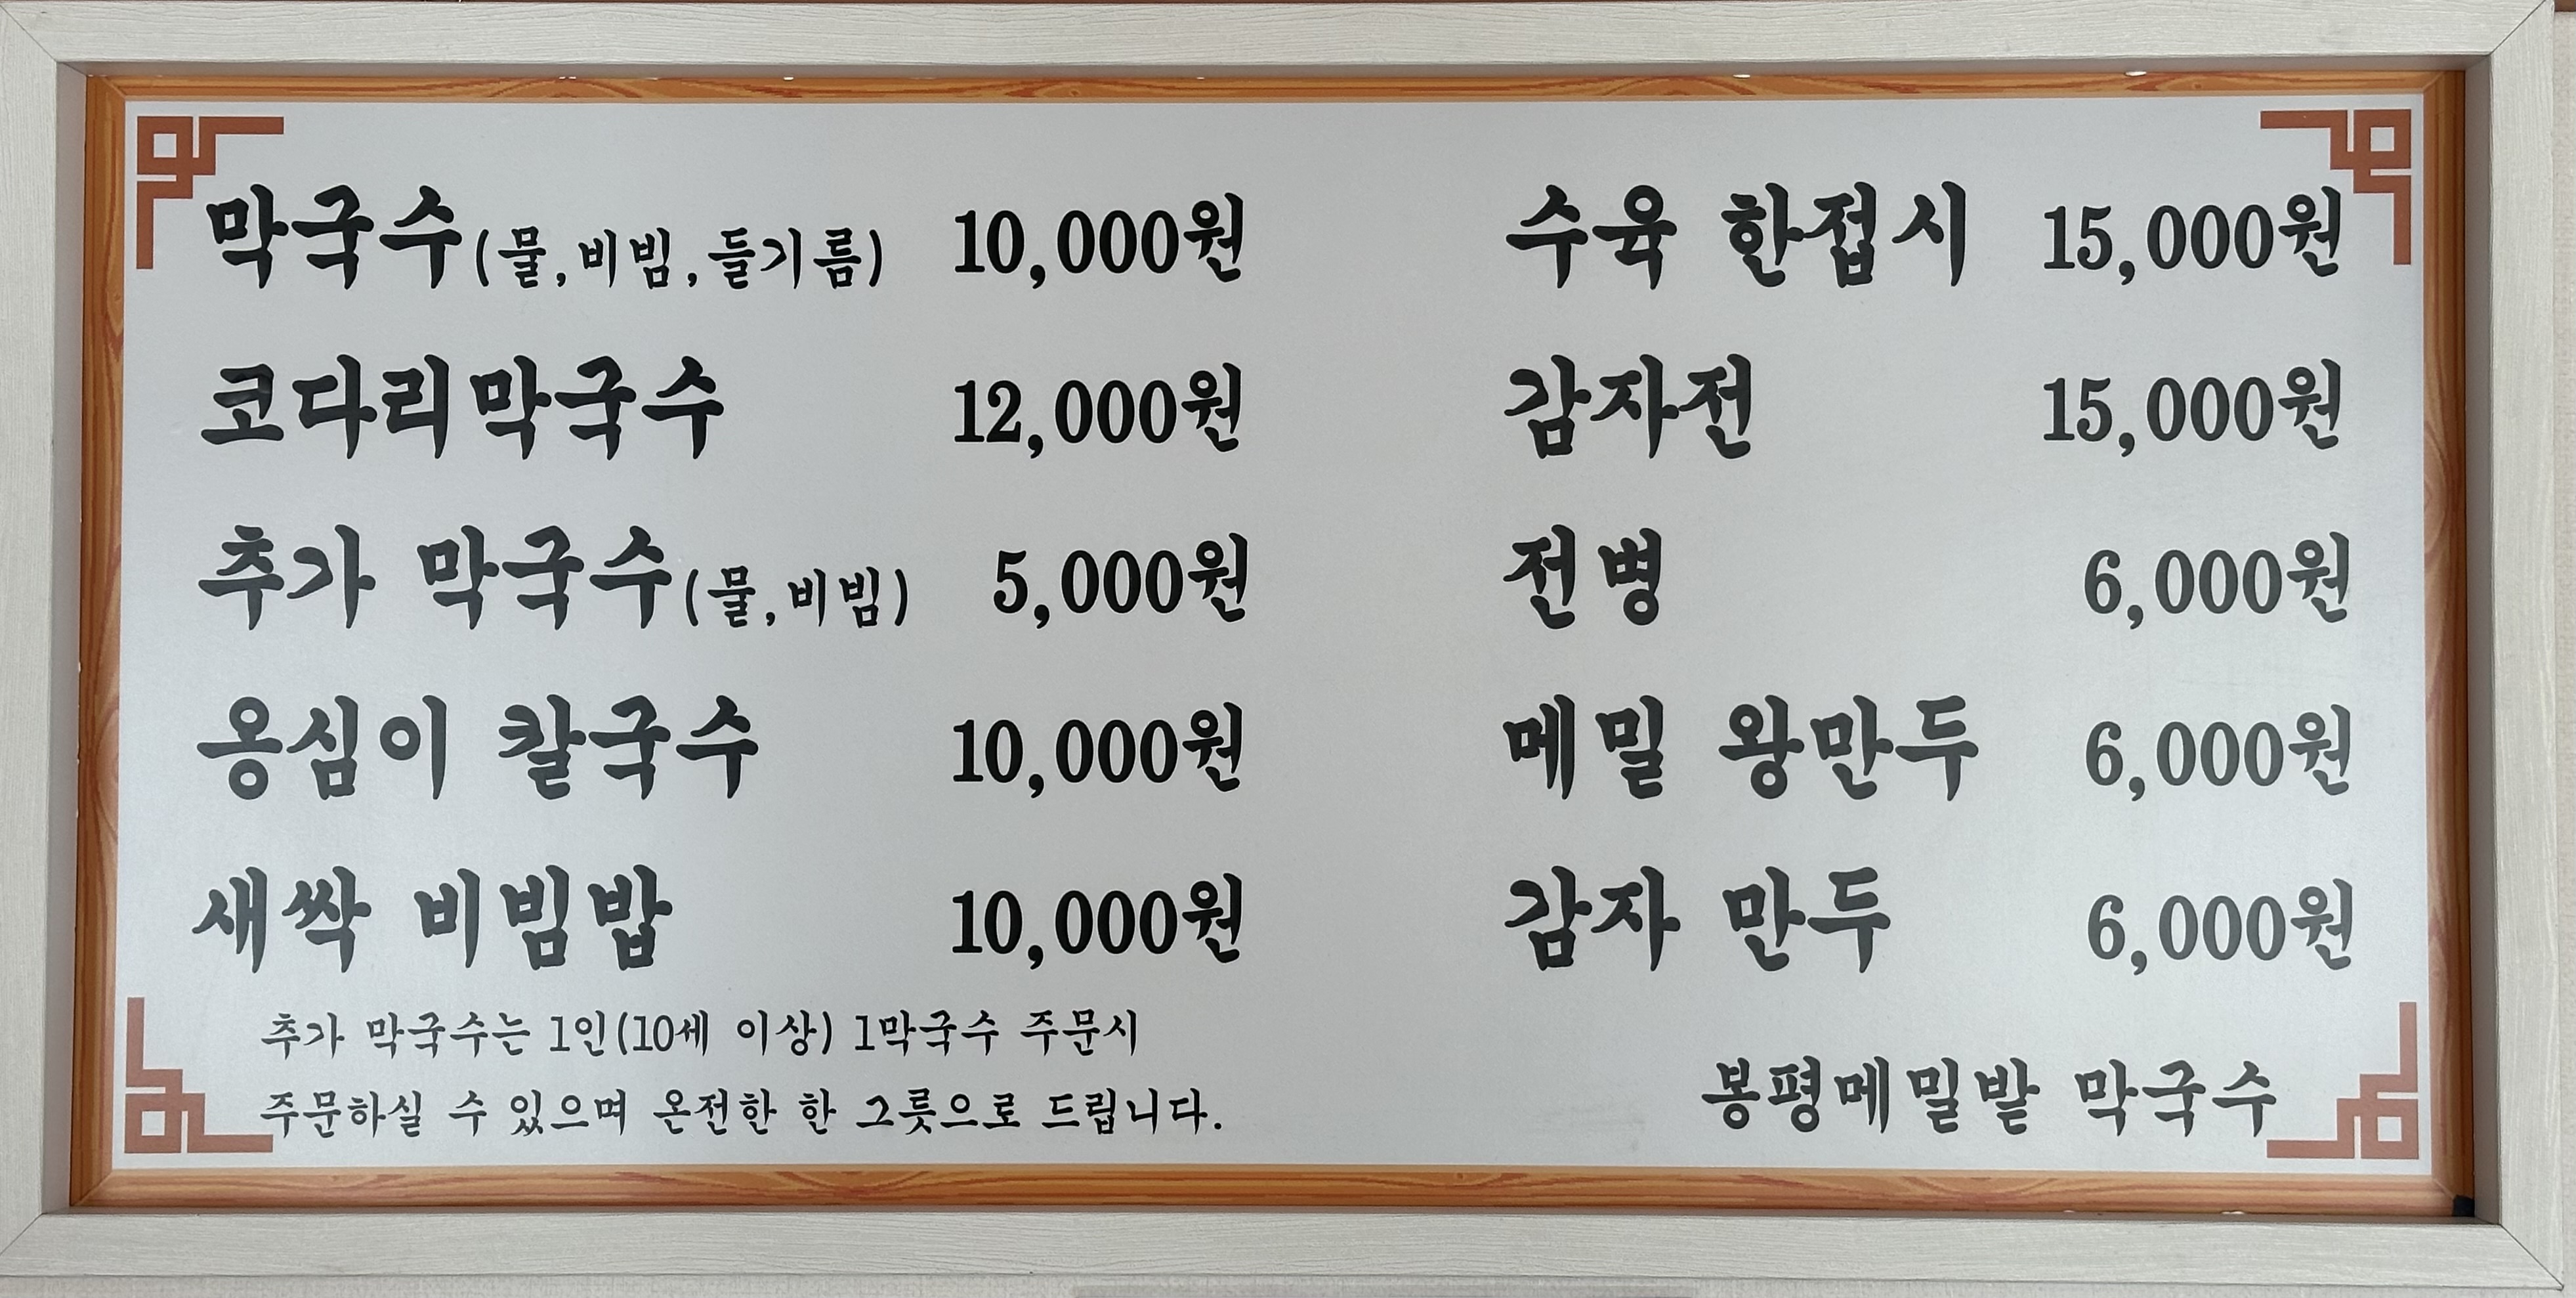 막국수(물,비빔,들기름) 10,000원
코다리막국수 12,000원
추가 막국수(물,비빔) 5,000원
옹심이 칼국수 10,000원
새싹 비빔밥 10,000원
추가 막국수는 1인(10세 이상) 1막국수 주문시
주문하실 수 있으며 온전한 한 그릇으로 드립니다.
수육 한접시 15,000원
감자전 15,000원
전병 6,000원
메밀 왕만두 6,000원
감자 만두 6,000원
봉평메밀밭 막국수